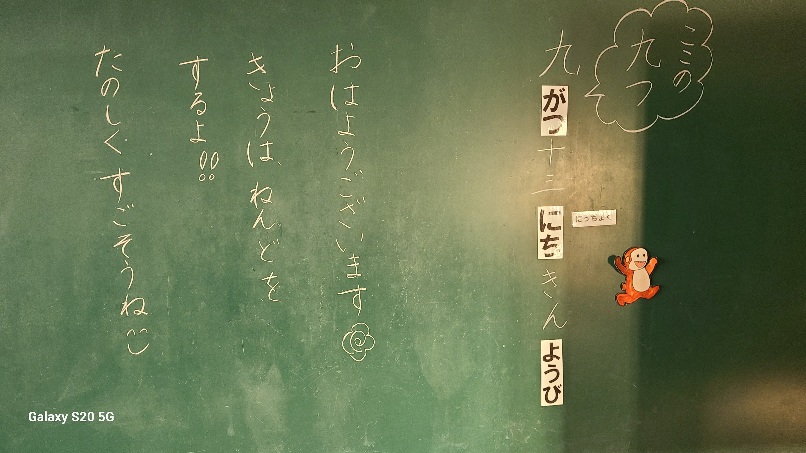 ここの
九つ
九がつ十三にちきんようび
にっちょく
おはようございます
きょうは、ねんどを
するよ!!
たのしくすごそうね
Galaxy S20 5G